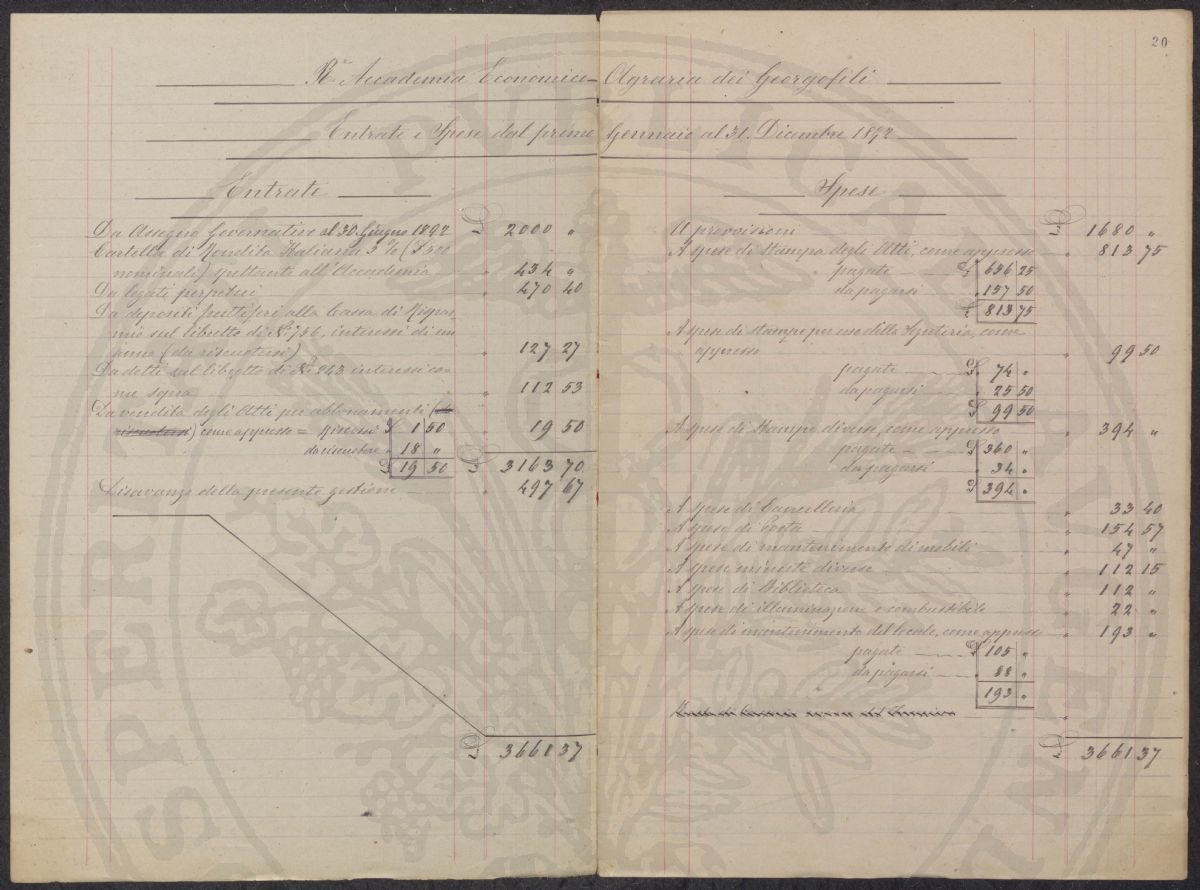 20
R.ª Accademia Economico-Agraria dei Georgofili
Entrate e Spese dal primo Gennaio al 31. Dicembre 1892
Entrate
Da Assegno Governativo al 30. Giugno 1892 £ 2000 "
Cartella di Rendita Italiana 3 % (£ 500
nominali) spettante all'Accademia " 434 "
Da legati perpetui " 470 40
Da depositi fruttiferi alla Cassa di Rispar-
mio sul libretto di N.º 756, interessi di un
anno (da riscuotersi) " 127 27
Da detti sul libretto di N.º 243 interessi co-
me sopra " 112 53
Da vendita degli Atti per abbonamenti (da
riscuotersi) come appresso = Riscossi £ 1 50 " 19 50
da riscuotere " 18 "
£ 19 50 £ 3163 70
Disavanzo della presente gestione " 497 67
£ 3661 37
Spese
A provvisioni £ 1680 "
A spese di stampa degli Atti, come appresso " 813 75
pagate £ 656 25
da pagarsi " 157 50
£ 813 75
A spese di stampe per uso della Segreteria, come
appresso " 99 50
pagate £ 74 "
da pagarsi " 25 50
£ 99 50
A spese di Stampe diverse, come appresso " 394 "
pagate £ 360 "
da pagarsi " 34 "
£ 394 "
A spese di Cancelleria " 33 40
A spese di Posta " 154 57
A spese di mantenimento di mobili " 47 "
A spese minute diverse " 112 15
A spese di Biblioteca " 112 "
A spese di illuminazione e combustibile " 22 "
A spese di mantenimento del locale, come appresso " 193 "
pagate £ 105 "
da pagarsi " 88 "
193 "
£ 3661 37